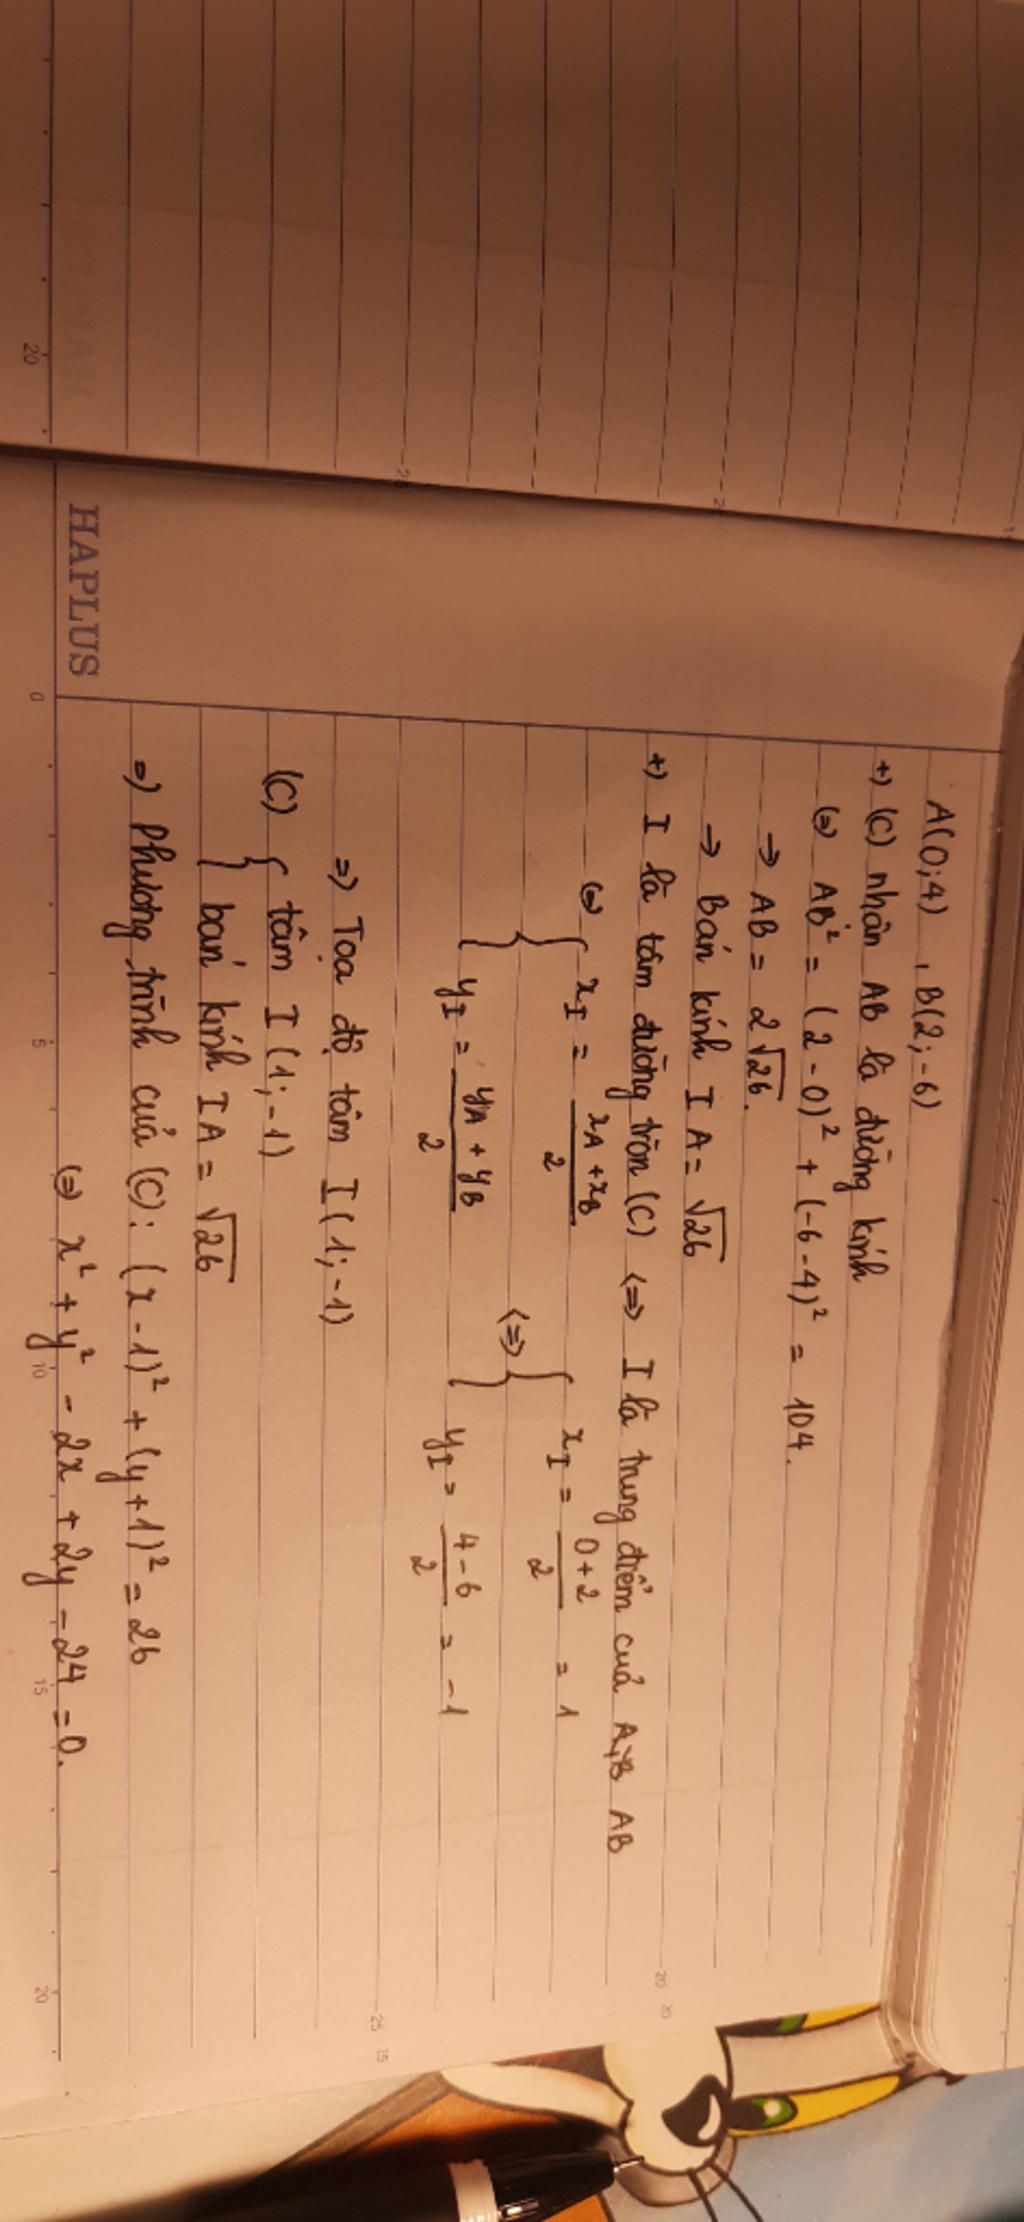 A(0;4) , B(2;-6)
+) (C) nhận AB là đường kính
(=) AB² = (2-0)² + (-6-4)² = 104.
→ AB = 2√26.
→ Bán kính IA = √26
+) I là tâm đường tròn (C) <=> I là trung điểm của A;B AB
(=) { x_I = (x_A + x_B)/2 <=> { x_I = (0+2)/2 = 1
y_I = (y_A + y_B)/2 y_I = (4-6)/2 = -1
=) Tọa độ tâm I(1;-1)
(C) { tâm I(1;-1)
bán kính IA = √26
=) Phương trình của (C): (x-1)² + (y+1)² = 26
(=) x² + y² - 2x + 2y - 24 = 0.
HAPLUS
0 5 10 15 20
20
25
20 20
25 15